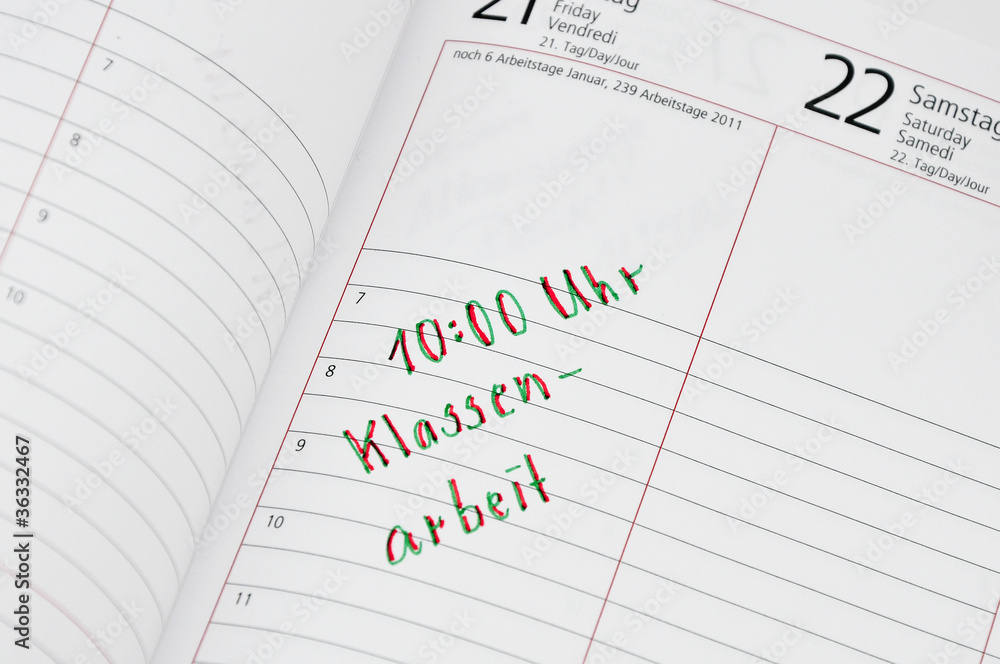 21
Friday
Vendredi
21. Tag/Day/Jour
noch 6 Arbeitstage Januar, 239 Arbeitstage 2011
22
Samstag
Saturday
Samedi
22. Tag/Day/Jour
7
8
9
10
7
8
9
10
11
10:00 Uhr
Klassen-
arbeit
Adobe Stock | #36332467